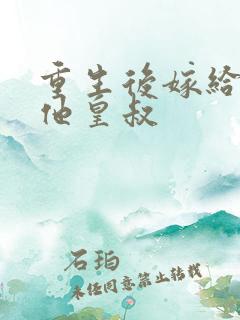 重生後嫁給
他皇叔
石珀
未任同意禁止轉載